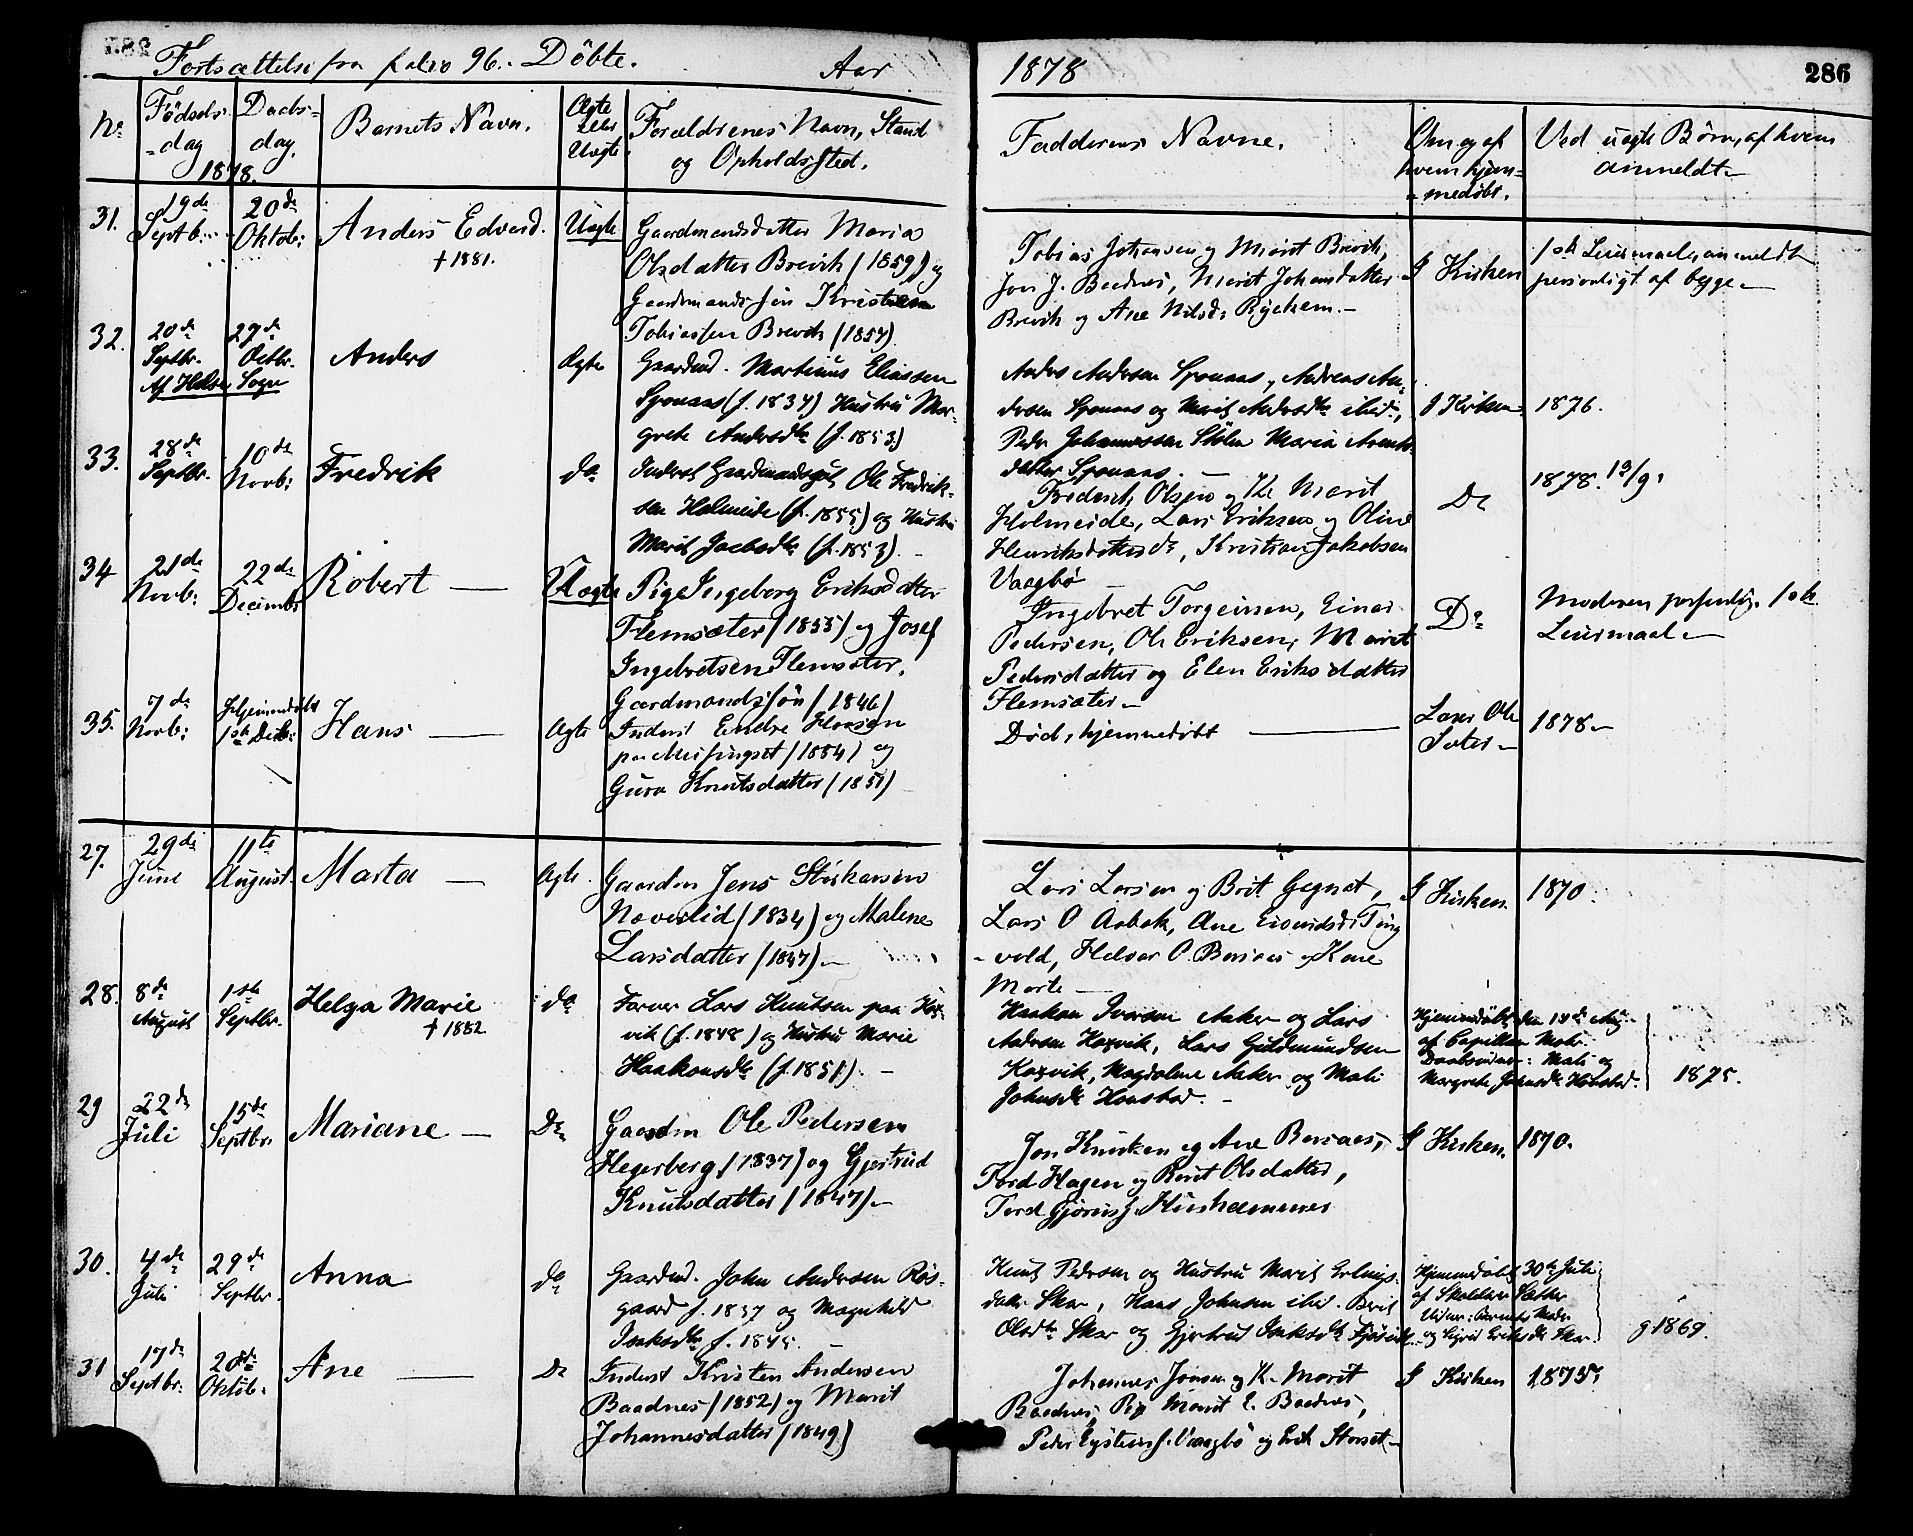 Fortsættelse fra folio 96. Döbte. Aar 1878 286
No Födsels-dag 1878. Daabs-dag. Barnets Navn. Ægte eller Uægte. Forældrenes Navn, Stand og Opholdssted. Faddernes Navne. Om og af hvem hjem-medöbt. Ved uægte Børn, af hvem anmeldt
31. 19de Septb: 20de Oktob: Anders Edvard. † 1881. Uægte
Gaardmandsdatter Maria
Olsdatter Brevik (1859) og
Gaardmandssön Kristian
Tobiassen Brevik (1854)
Tobias Johansen og Marit Brevik,
Jon J. Baadnes, Marit Johansdatter
Brevik og Ane Nilsd:
I Kirken
1ste Leiermaal, anmeldt
personligt af begge
32. 20de Septbr. 27de Octbr. Af Halse Sogn Anders Ægte
Gaardmd. Martinus Eliassen
(f. 1834) Hustru Mar-
grete Andersdtr (f. 1853)
Anders Andersen, Andreas An-
dersen og Marit Andersdtr ibid.,
Peder Johannessen Stölen Maria
datter
I Kirken 1876.
33. 28de Septbr. 10de Novb: Fredrik do
Inderst Gaardmandsgut Ole Fredrik-
sen Holmeide (f. 1855) og Hustru
Marit Jacobsdtr (f. 1853).
Frederik Olsen og K. Marit
Holmeide, Lars Eriksen og Oline
Henriksdatter do, Kristian Jakobsen
Vaagbö
Do 1878. 13/9.
34 21de Novb: 22de Decembr Robert Uægte
Pige Ingeborg Eriksdatter
Flemsæter (1855) og Josef
Ingebretsen Flemsæter,
Gaardmandssön (1846)
Ingebret Torgeirsen, Einar
Pedersen, Ole Eriksen, Marit
Pedersdatter og Elen Eriksdatter
Flemsæter
Do
Moderen personlig. 1ste
Leiermaal
35. 7de Novb: Hjemmedöbt 1ste Decb: Hans Ægte
Inderst Endre Hansen
paa Meisingset (1854) og
Guro Knutsdatter (1851)
Död, hjemmedöbt
Lærer Ole
Sæter
1878
27. 29de Juni 11te August. Marta Ægte.
Gaardm Jens Styrkarsen
Næverlid (1834) og Malene
Larsdatter (1847)
Lars Larsen og Brit Gegnat,
Lars O Aabak, Ane Eivindsd: Ting
vold, Helvor O. Bersaas og Kone
Marte
I Kirken. 1870.
28. 8de August 1ste Septbr. Helga Marie † 1882 do
Farver Lars Knutsen paa Kor-
vik (f. 1848) og Hustru Marie
Haakonsdtr (f. 1851).
Haakon Iversen Aaker og Lars
Andersen Korvik, Lars Guldmundsen
Korvik, Magdalene Aaker og Mali
Johnsdtr Honstad.
Hjemmedöbt den 14de Aug.
af Capellan
Daabsvidner: Mali og
Margrete Johnsdtr Honstad.
1875.
29 22de Juli 15de Septbr. Mariane Do
Gaardm Ole Pedersen
Hegerberg (1837) og Gjertrud
Knutsdatter (1847)
Jon Knutsen og Ane Bersaas,
Tord Hagen og Berit Olsdatter,
Tord
I Kirken. 1870.
30. 4de Juli 29de Septbr. Anna do
Gaardmd. John Andersen Rös-
gaard f. 1837 og Magnhild
Isaksdtr f. 1845.
Knut Pedersen og Hustru Marit Erlings-
datter Skar, Hans Johnsen ibid. Berit
Olsdtr Skar og Gjertrud Isaksdtr
Hjemmedöbt 30te Juli
af Skolelærer Sæther
Vidner: Barnets Moder
og Sigrid Eriksdtr Skar.
g 1869.
31 17de Septbr: 20de Oktob: Ane Do
Inderst Kristen Andersen
Baadnes (1852) og Marit
Johannesdatter (1849)
Johannes Jonsen og K. Marit
Baadnes, Pige Marit E. Baadnes,
Peder Eysteins. Vaagbö og Erik Storset
I Kirken 1875.